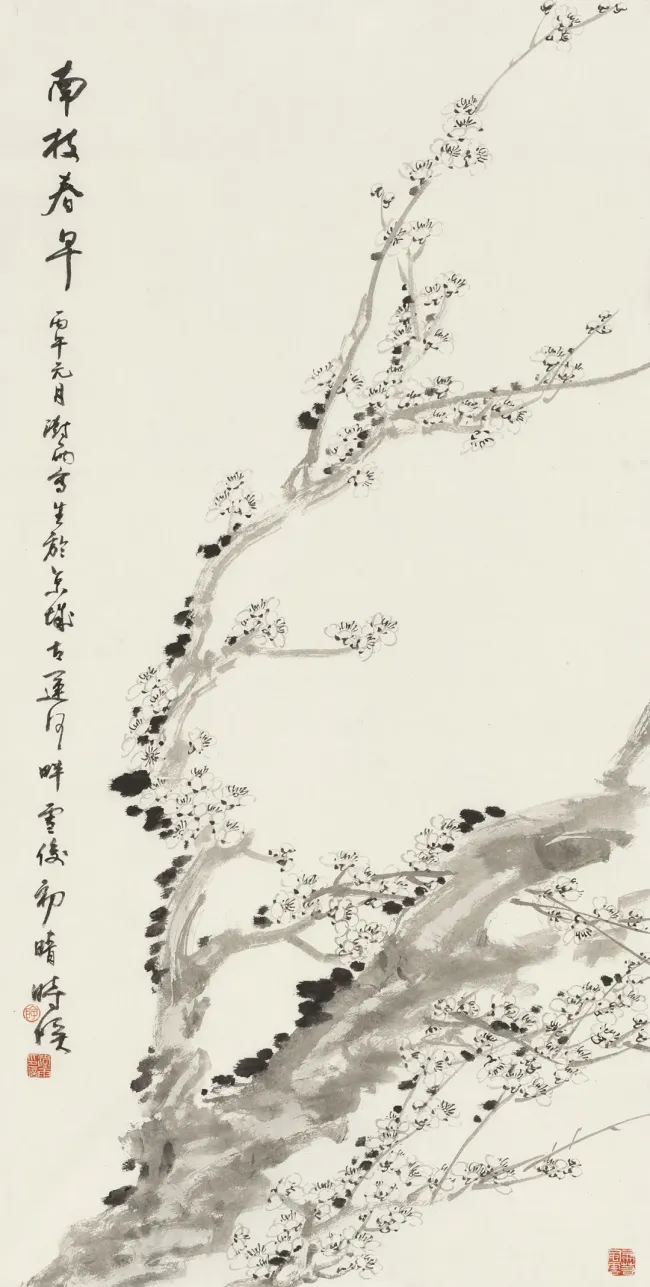 南枝春早
丙午元月澍雨写生於京城古运河畔雪后初晴时候